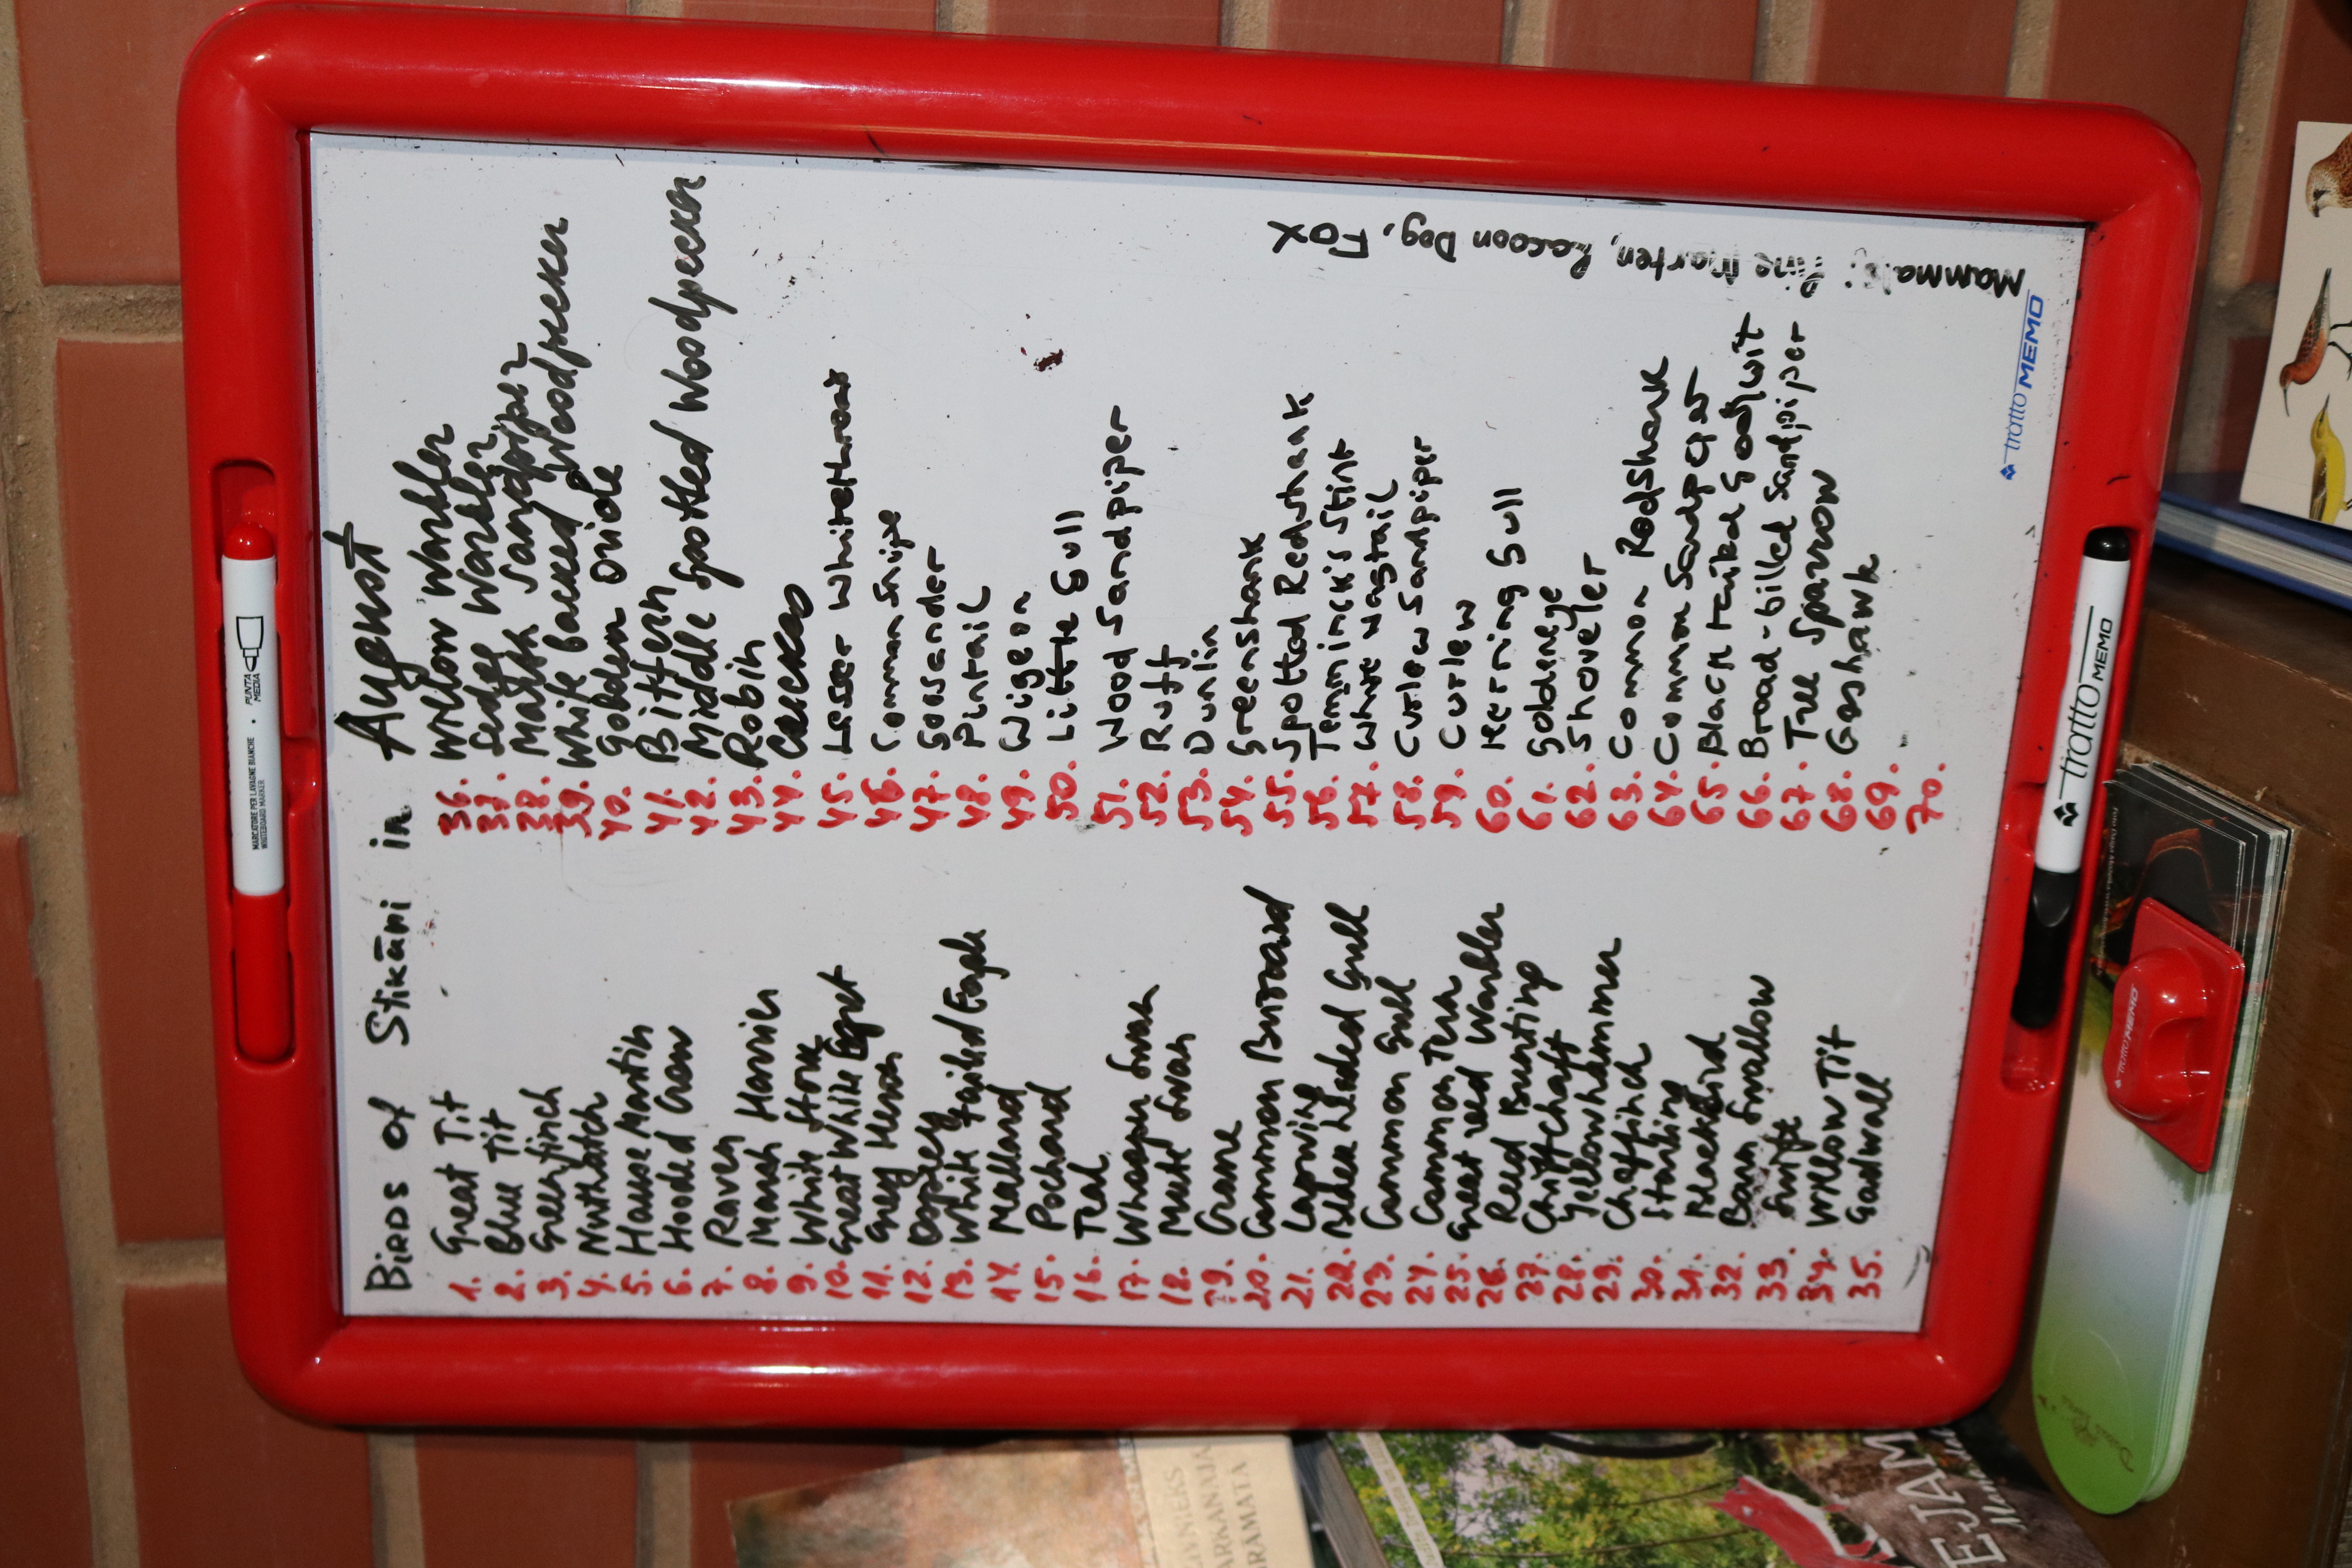 Birds of Stikāni in August
1. Great Tit
2. Blue Tit
3. Greenfinch
4. Nuthatch
5. House Martin
6. Hooded Crow
7. Raven
8. Marsh Harrier
9. White Stork
10. Great White Egret
11. Grey Heron
12. Osprey
13. White tailed Eagle
14. Mallard
15. Pochard
16. Teal
17. Whooper Swan
18. Mute Swan
19. Crane
20. Common Buzzard
21. Lapwing
22. Black headed Gull
23. Common Gull
24. Common Tern
25. Great reed Warbler
26. Reed Bunting
27. Chiffchaff
28. Yellowhammer
29. Chaffinch
30. Starling
31. Blackbird
32. Barn Swallow
33. Swift
34. Willow Tit
35. Gadwall
36. Willow Warbler
37. Sedge Warbler
38. Marsh Sandpiper
39. White backed Woodpecker
40. Golden Oriole
41. Bittern
42. Middle Spotted Woodpecker
43. Robin
44.
45. Lesser Whitethroat
46. Common Snipe
47. Goosander
48. Pintail
49. Wigeon
50. Little Gull
51. Wood Sandpiper
52. Ruff
53. Dunlin
54. Greenshank
55. Spotted Redshank
56. Temminck's Stint
57. White Wagtail
58. Curlew Sandpiper
59. Curlew
60. Herring Gull
61. Goldeneye
62. Shoveler
63. Common Redshank
64. Common Sandpiper
65. Black tailed Godwit
66. Broad-billed Sandpiper
67. Tree Sparrow
68. Goshawk
69.
70.
Mammals: Pine Marten, Racoon Dog, Fox
tratto MEMO
tratto MEMO
MARCATORE PER LAVAGNE BIANCHE
WHITEBOARD MARKER
PUNTA
MEDIA
tratto MEMO
GRAMATA